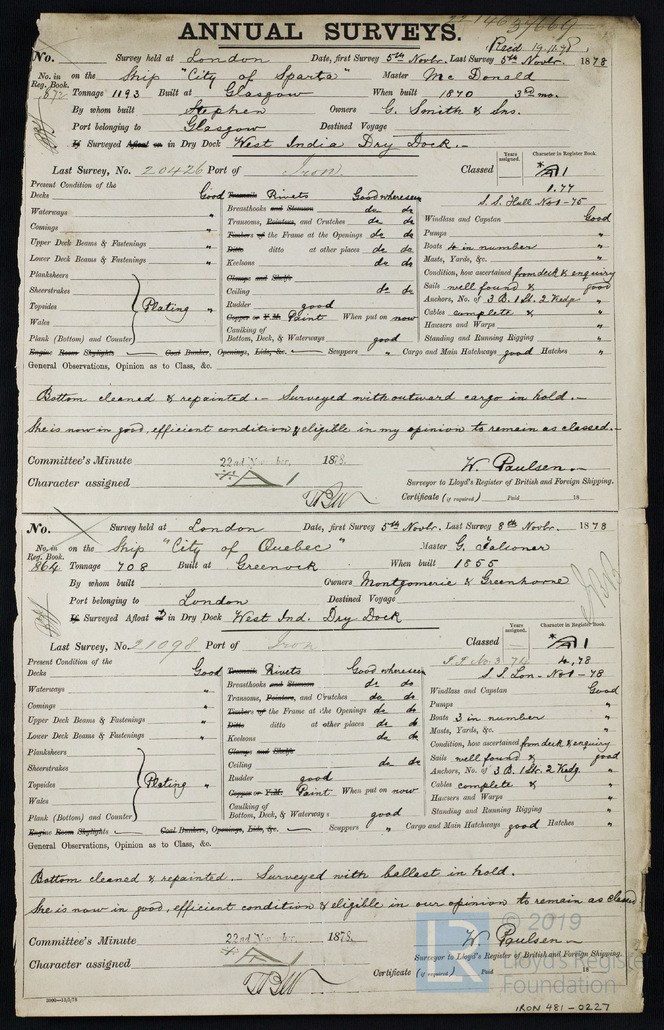 ANNUAL SURVEYS.
Recd 19.11.78
No. Survey held at London Date, first Survey 5th Novbr. Last Survey 5th Novbr. 1878
No. in Reg. Book. on the Ship "City of Sparta" Master Mc Donald
672 Tonnage 1193 Built at Glasgow When built 1870 3rd mo.
By whom built Stephen Owners G. Smith & Sns.
Port belonging to Glasgow Destined Voyage
If Surveyed Afloat or in Dry Dock West India Dry Dock.
Last Survey, No. 20426 Port of Iron Classed Years assigned. Character in Register Book.
A 1
1.77
S.S. Hull No 1-75
Present Condition of the
Decks Good Treenails Rivets Good where seen
Waterways " Breasthooks and Stemson do do Windlass and Capstan Good
Comings " Transoms, Pointers, and Crutches do do Pumps "
Upper Deck Beams & Fastenings " Timbers of the Frame at the Openings do do Boats 4 in number "
Lower Deck Beams & Fastenings " Ditto ditto at other places do do Masts, Yards, &c. "
Planksheers Keelsons do do Condition, how ascertained from deck & enquiry
Sheerstrakes Clamps and Shelfs Sails well found & good
Topsides Plating " Ceiling do do Anchors, No. of 3 B. 1 St. 2 Kedg "
Wales Rudder good Cables complete & "
Plank (Bottom) and Counter Copper or Y.M. Paint When put on now Hawsers and Warps "
Caulking of Bottom, Deck, & Waterways good Standing and Running Rigging "
Engine Room Skylights Coal Bunker, Openings, Lids, &c. Scuppers " Cargo and Main Hatchways good Hatches "
General Observations, Opinion as to Class, &c.
Bottom cleaned & repainted. — Surveyed with outward cargo in hold. —
She is now in good, efficient condition & eligible in my opinion to remain as classed. —
Committee's Minute 22nd November, 1878.
Character assigned A 1
W. Paulsen
Surveyor to Lloyd's Register of British and Foreign Shipping.
Certificate (if required) Paid 18
No. Survey held at London Date, first Survey 5th Novbr. Last Survey 8th Novbr. 1878
No. in Reg. Book. on the Ship "City of Quebec" Master G. Falconer
864 Tonnage 708 Built at Greenock When built 1855
By whom built Owners Montgomerie & Greenhorne
Port belonging to London Destined Voyage
If Surveyed Afloat or in Dry Dock West Ind. Dry Dock
Last Survey, No. 21098 Port of Iron Classed Years assigned. Character in Register Book.
A 1
4.78
S.S. Lon - No 1 - 78
Present Condition of the
Decks Good Treenails Rivets Good where seen
Waterways " Breasthooks and Stemson do do Windlass and Capstan Good
Comings " Transoms, Pointers, and Crutches do do Pumps "
Upper Deck Beams & Fastenings " Timbers of the Frame at the Openings do do Boats 3 in number "
Lower Deck Beams & Fastenings " Ditto ditto at other places do do Masts, Yards, &c. "
Planksheers Keelsons do do Condition, how ascertained from deck & enquiry
Sheerstrakes Clamps and Shelfs Sails well found & good
Topsides Plating " Ceiling do do Anchors, No. of 3 B. 1 St. 2 Kedg. "
Wales Rudder good Cables complete & "
Plank (Bottom) and Counter Copper or Y.M. Paint When put on now Hawsers and Warps "
Caulking of Bottom, Deck, & Waterways good Standing and Running Rigging "
Engine Room Skylights Coal Bunkers, Openings, Lids, &c. Scuppers " Cargo and Main Hatchways good Hatches "
General Observations, Opinion as to Class, &c.
Bottom cleaned & repainted. — Surveyed with ballast in hold.
She is now in good, efficient condition & eligible in our opinion to remain as classed
Committee's Minute 22nd November, 1878.
Character assigned A 1
W. Paulsen
Surveyor to Lloyd's Register of British and Foreign Shipping.
Certificate (if required) Paid 18
LR © 2019
Lloyd's Register
Foundation
IRON 481-0227